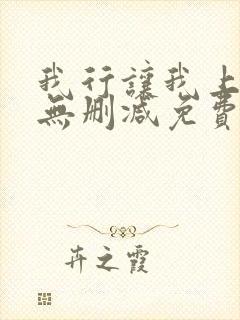 我行讓我上
無刪減免費
卉之霞